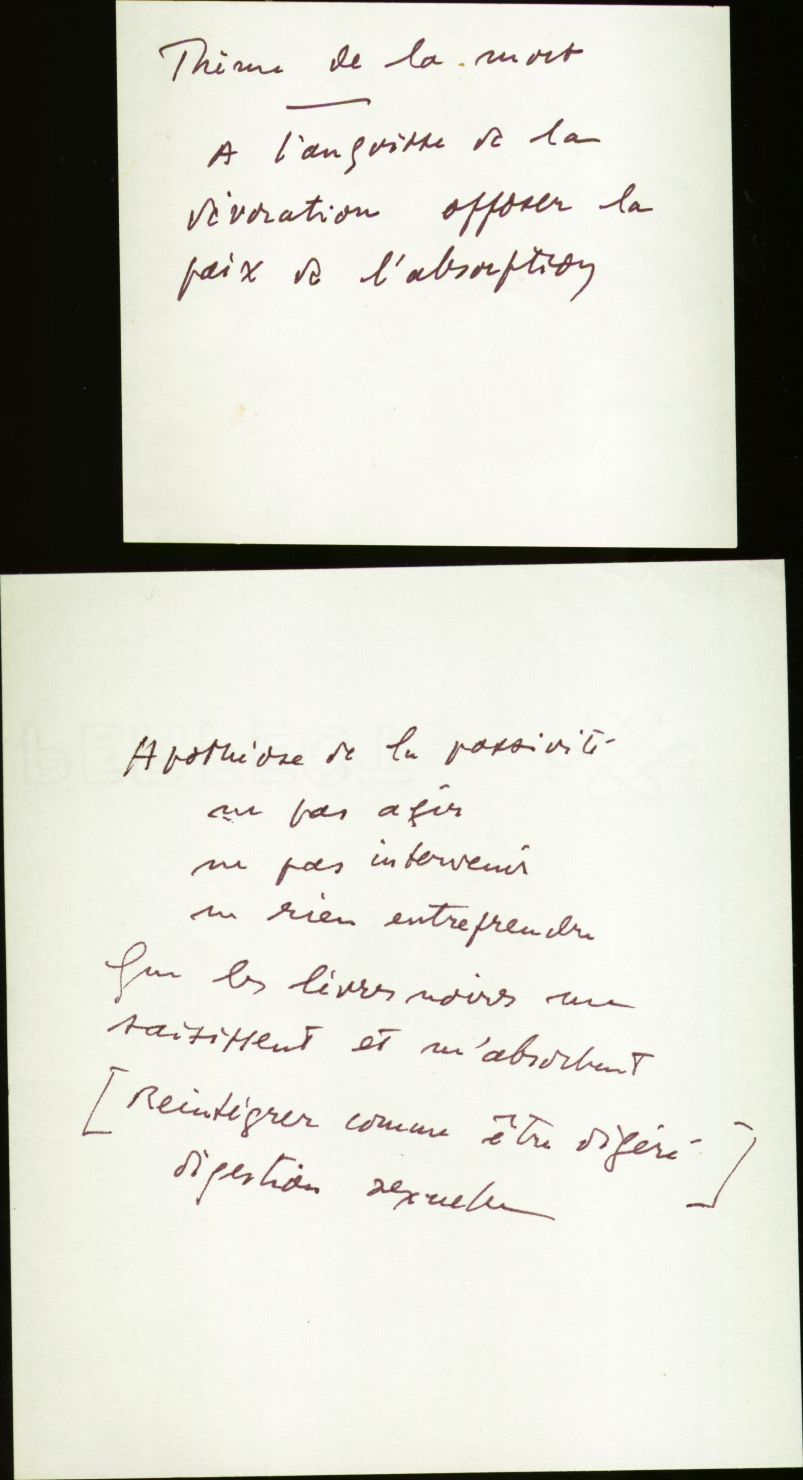 Thème de la mort
A l'angoisse de la
dévoration opposer la
paix de l'absorption
Apothéose de la passivité
ne pas agir
ne pas intervenir
ne rien entreprendre
Que les lèvres noires me
saisissent et m'absorbent
[Réintégrer comme être digéré]
digestion sexuelle